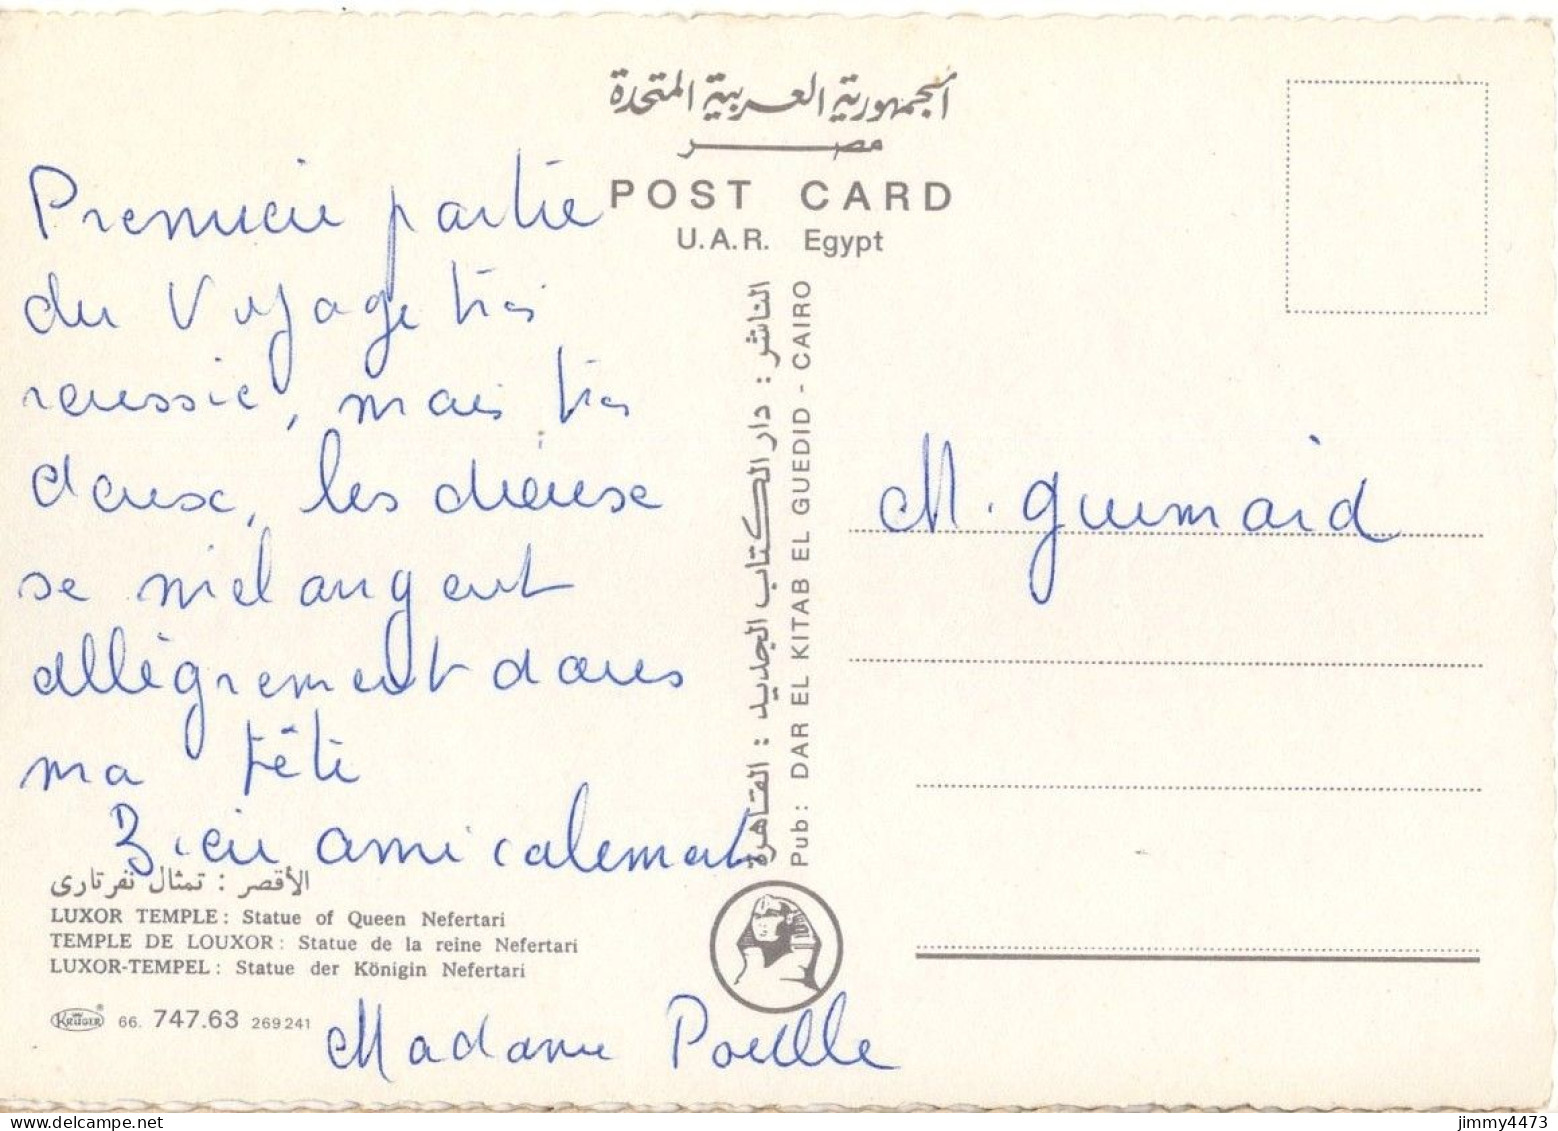 الجمهورية العربية المتحدة
مصر
POST CARD
U.A.R. Egypt
Premiere partie
du voyage très
reussie, mais très
dense, les dieux
se mélangent
allègrement dans
ma tête
Bien amicalement
الأقصر : تمثال نفرتارى
LUXOR TEMPLE: Statue of Queen Nefertari
TEMPLE DE LOUXOR: Statue de la reine Nefertari
LUXOR-TEMPEL: Statue der Königin Nefertari
KRÜGER ® 66. 747.63 269241
Madame
الناشر : دار الكتاب الجديد : القاهرة
Pub: DAR EL KITAB EL GUEDID - CAIRO
M. Guimard
jimmy4473